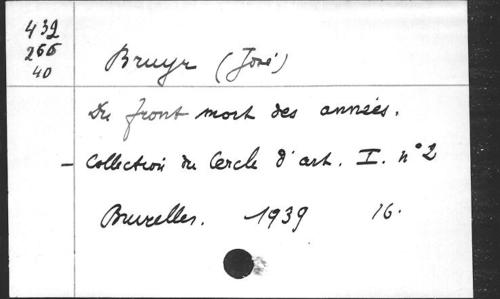 432
266
40
Bruyr (José)
Du front mort des années.
- Collection du Cercle d'art. I. n° 2
Bruxelles. 1939 16.